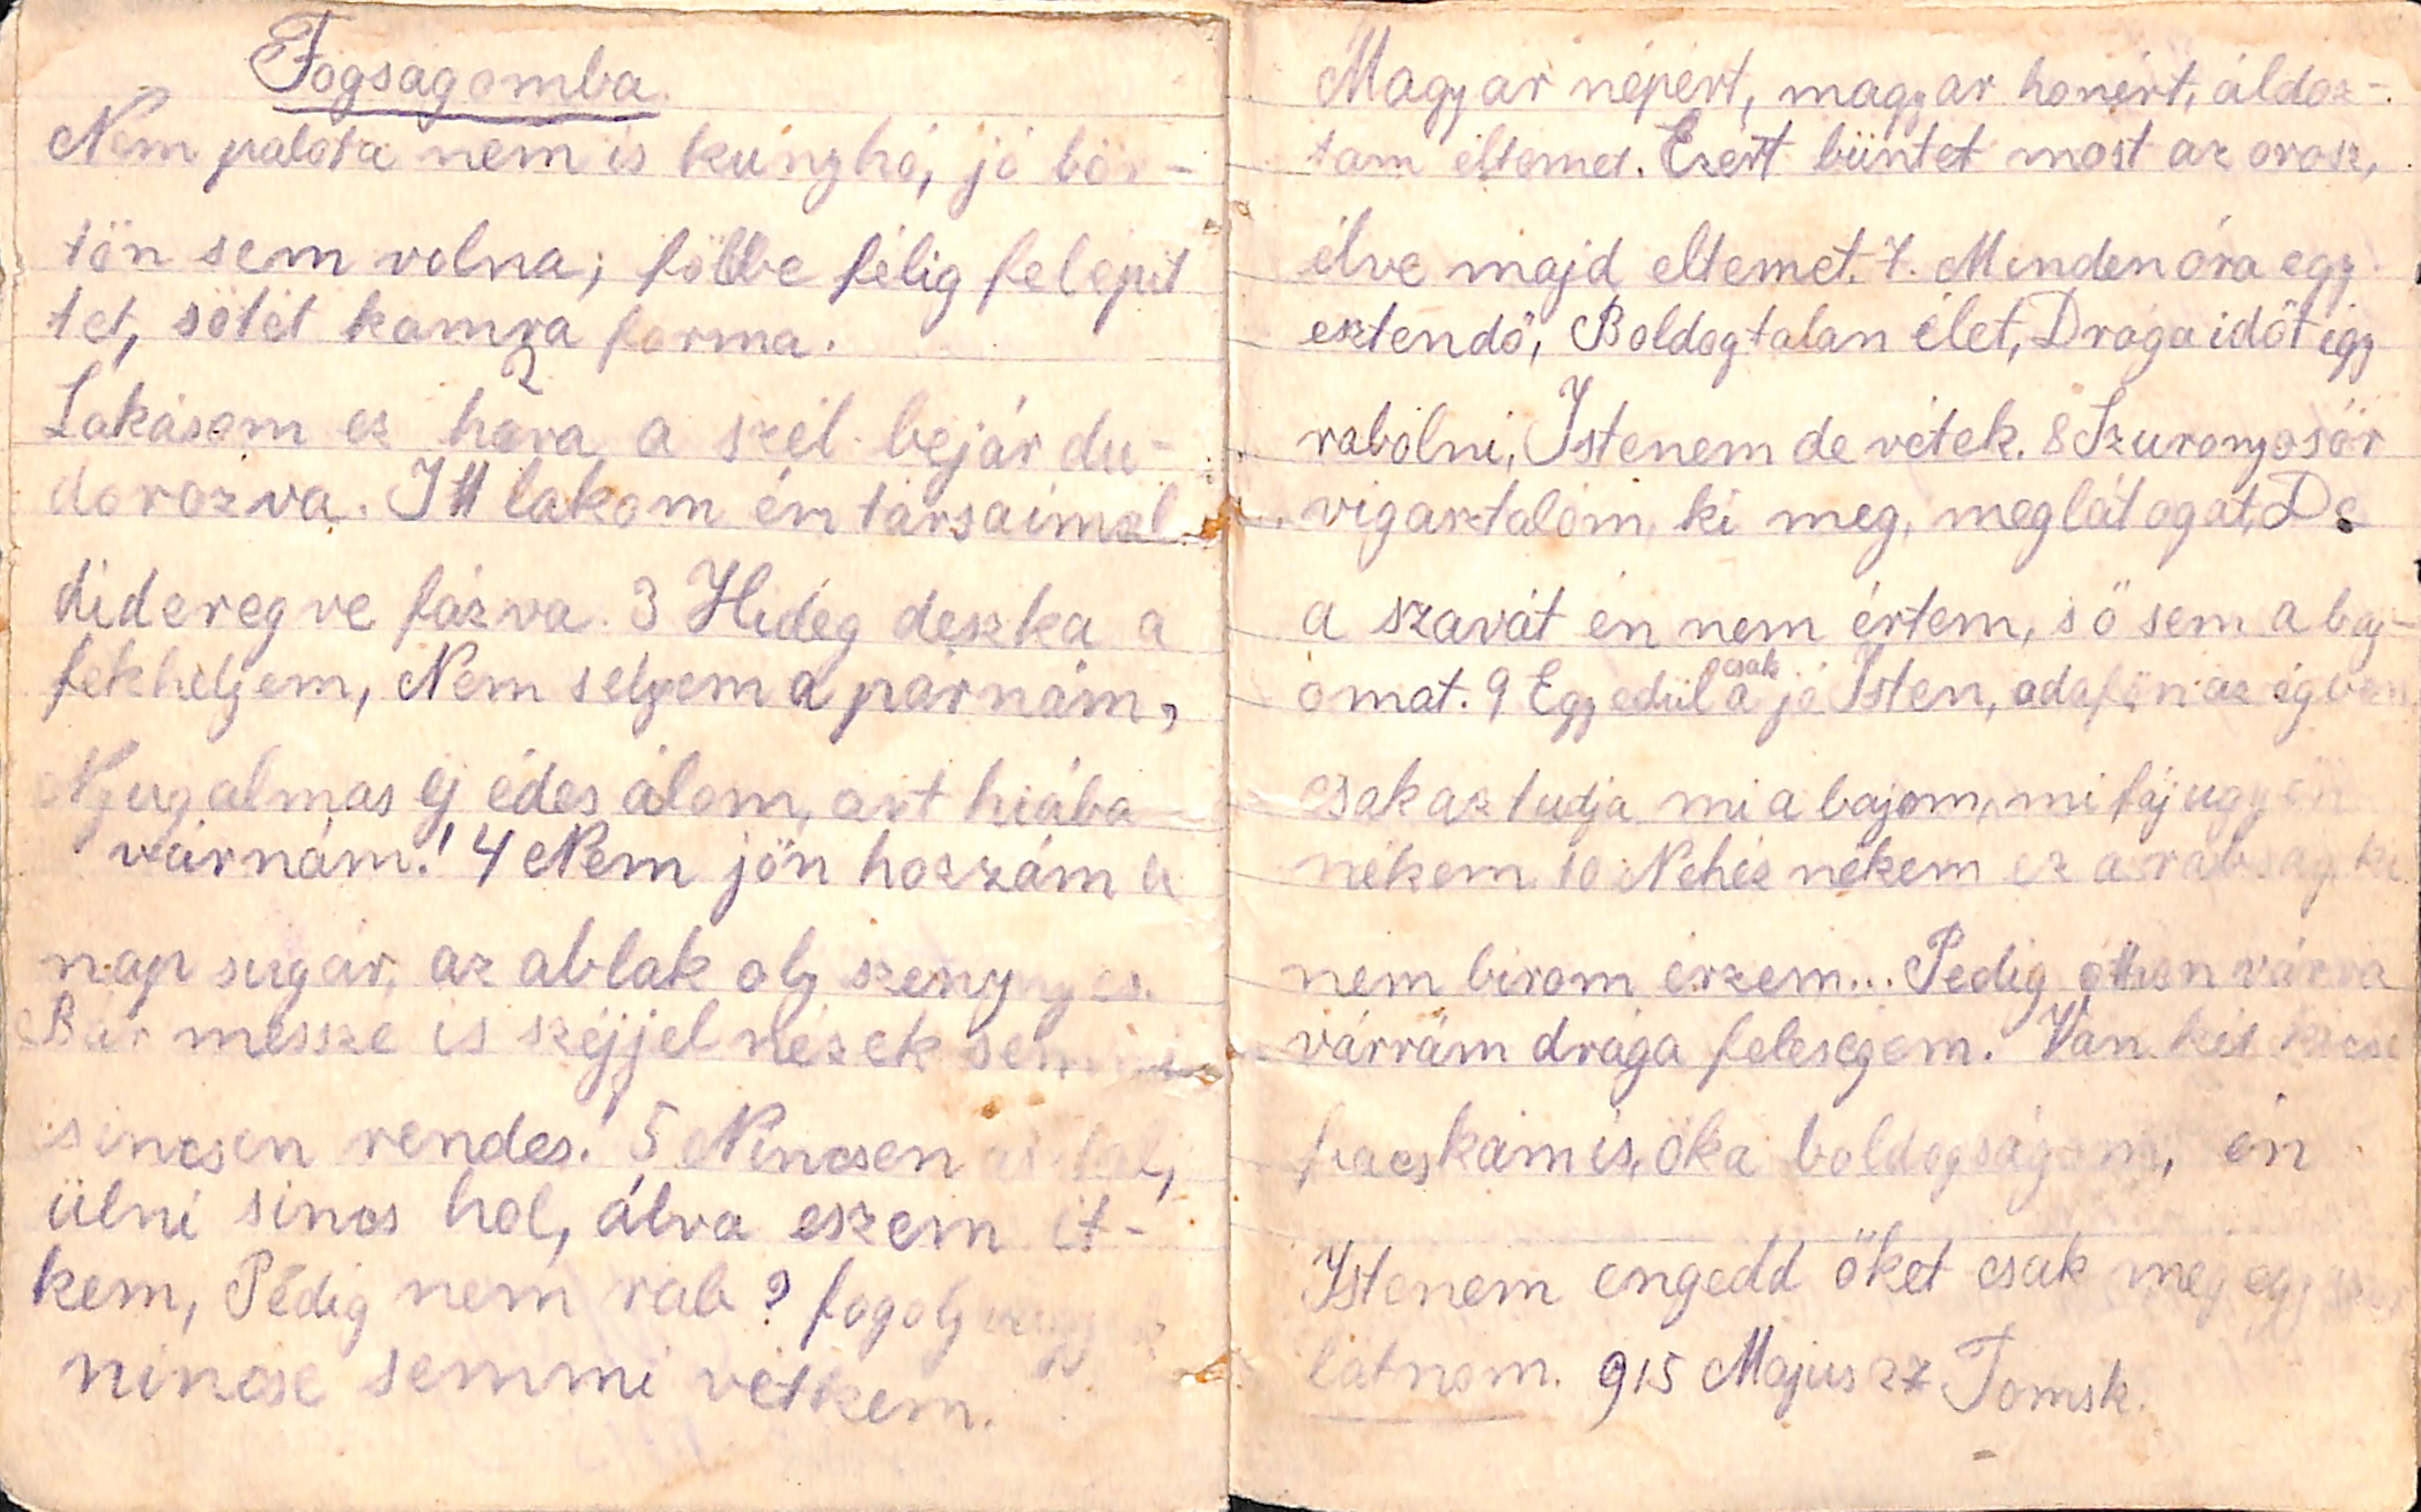 Fogságomba.
Nem palota nem is kunyhó, jó bör-
tön sem volna; földbe félig felépit
tet, sötét kamra forma.
2
Lakásom ez hova a szél bejár du-
dorozva. Itt lakom én társaimal
didereg ve fázva. 3 Hideg deszka a
fekhelyem, Nem selyem a párnám,
Nyugalmas éj édes álom, azt hiába
várnám! 4 Nem jön hozzám a
nap sugár, az ablak oly szennyes.
Bár messze is széjjel nézek
sincsen rendes! 5 Nincsen asztal,
ülni sincs hol, álva eszem ét-
kem, Pédig nem rab? fogoly vagyok
nincse semmi vétkem.
Magyar népért, magyar honért, áldoz-
tam éltemet. Ezért büntet most az orosz,
élve majd eltemet. 7. Minden óra egy
esztendő, Boldogtalan élet, Drága időt igy
rabolni, Istenem de vétek. 8 Szuronyosőr
vigasztalóm, ki meg, meglátogat, De
a szavát én nem értem, s ő sem a baj-
omat. 9 Egyedül csak a jó Isten, odafön az égben
csak az tudja mi a bajom, mi fáj ugy én
nékem 10 Nehéz nékem ez a rabság ki
nem birom érzem... Pedig otthon várva
várrám drága feleségem. Van két kicsi
fiacskám is, ők a boldogságom, én
Istenem engedd őket csak még egyszer
látnom. 915 Majus 27 Tomsk.